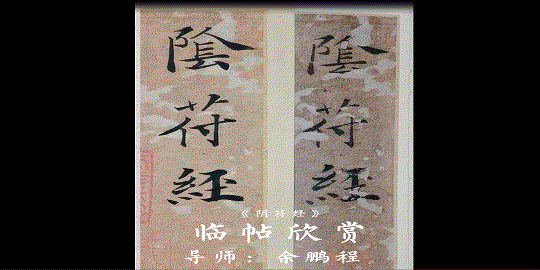 陰符經
陰符經
《阴符经》
临帖欣赏
导师：余鹏程